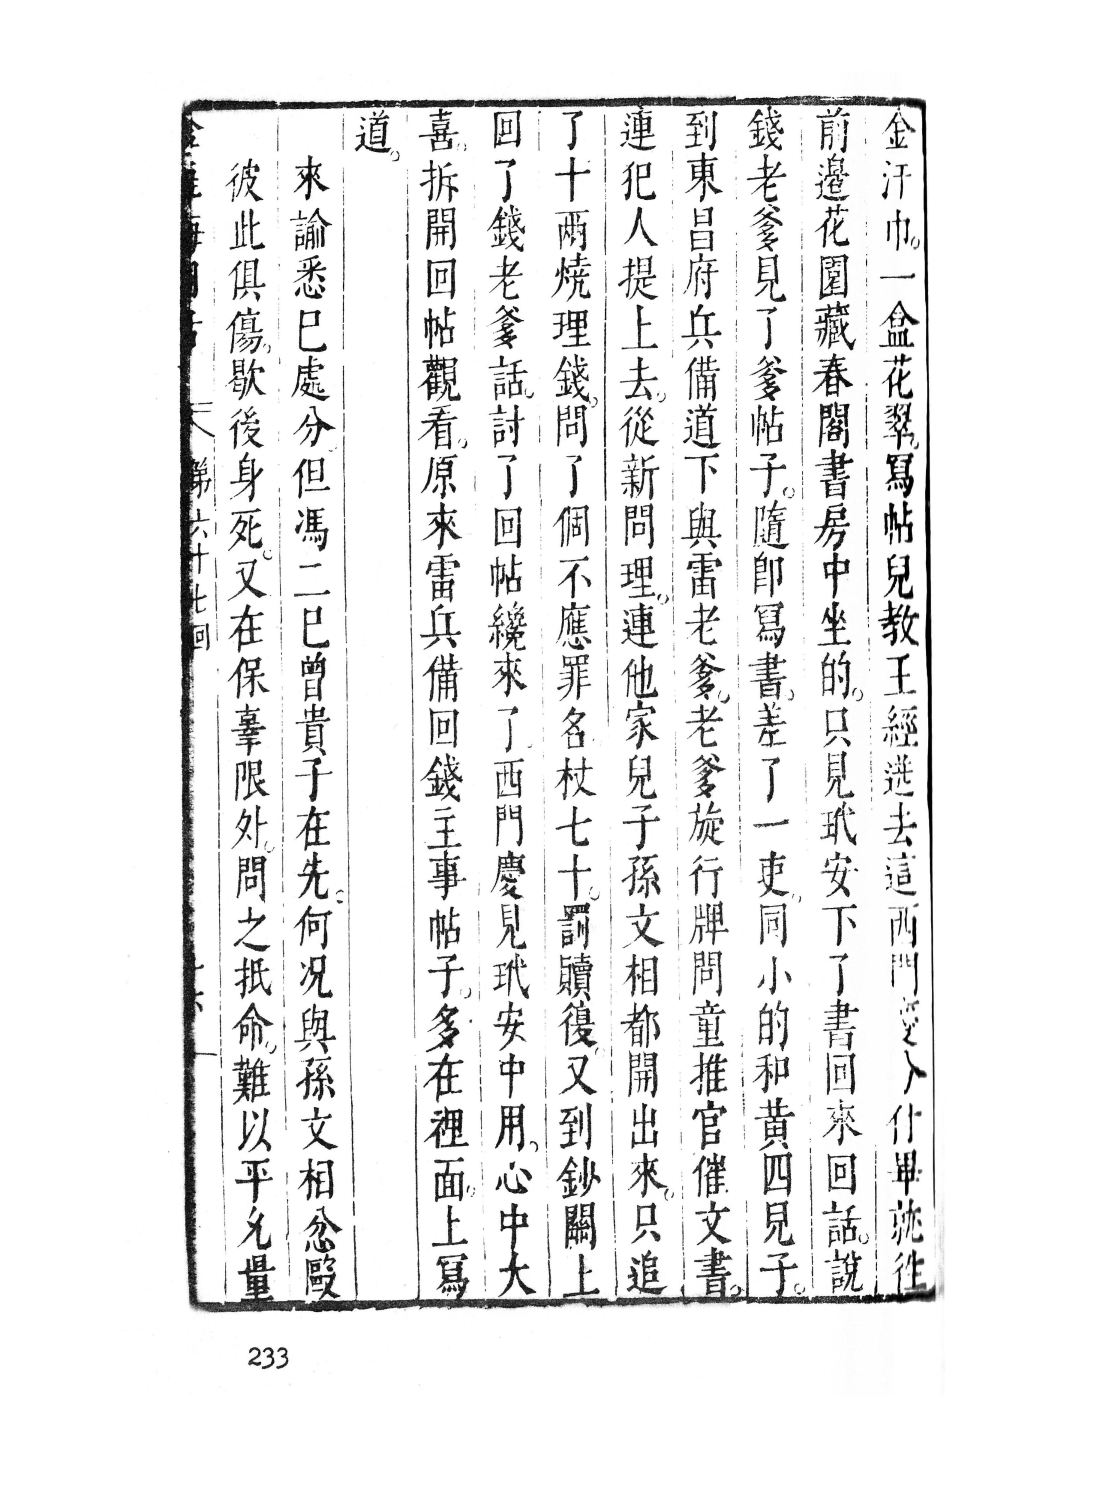 金汗巾。一盒花翠。寫帖兒教王經送去這西門慶分付畢就徃
前邉花園藏春閣書房中坐的。只見玳安下了書回來回話。說
錢老爹見了爹帖子。隨卽寫書。差了一吏。同小的和黃四兒子。
到東昌府兵備道下與雷老爹。老爹旋行牌問童推官催文書。
連犯人提上去。從新問理。連他家兒子孫文相都開出來。只追
了十兩燒理錢。問了個不應罪名杖七十。罰贖復。又到鈔關上
回了錢老爹話。討了回帖纔來了。西門慶見玳安中用。心中大
喜。拆開回帖觀看。原來雷兵備回錢主事帖子。多在裡面。上寫
道。
來諭悉已處分。但馮二已曾責子在先。何况與孫文相忿毆
彼此俱傷。歇後身死。又在保辜限外。問之抵命。難以平允量
第六十七回
233